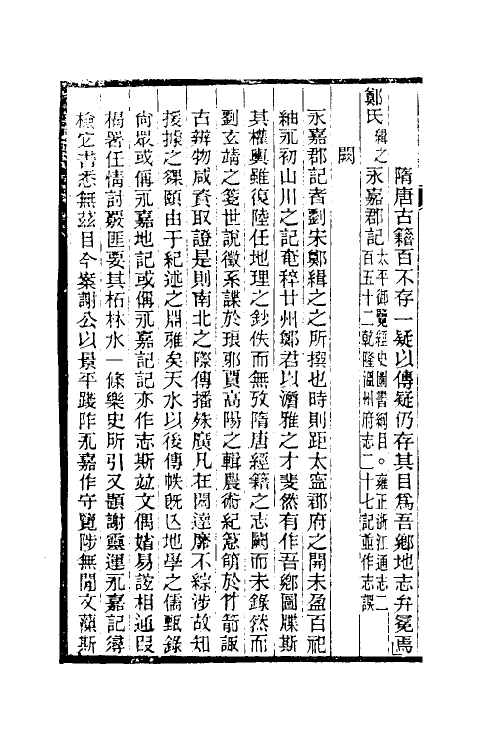 隋唐古籍百不存一疑以傳疑仍存其目爲吾鄉地志弁冕焉
鄭氏緝之永嘉郡記太平御覽經史圖書綱目。雍正浙江通志二
百五十二乾隆溫州府志二十七記並作志誤
闕
永嘉郡記者劉宋鄭緝之之所撰也時則距太寍郡府之開未盈百祀
紬永初山川之記奄稡廿州鄭君以瀹雅之才斐然有作吾鄉圖牒斯
其權輿雖復陸任地理之鈔佚而無攷隋唐經籍之志闕而未錄然而
劉玄靖之箋世說徵系諜於琅邪賈高陽之輯農術紀䈚䈛於竹箭諏
古辨物咸資取證是則南北之際傳播殊廣凡在閎達靡不綜涉故知
援據之𥡴頤由于紀述之淵雅矣天水以後傳帙旣亾地學之儒甄錄
尙眾或偁永嘉地記或偁永嘉記記亦作志斯竝文偶婼易誼相通叚
楬署任情討覈匪要其柘林水一條樂史所引又題謝靈運永嘉記㝵
檢它書悉無茲目今案謝公以景平踐阼永嘉作守覽陟無閒文藻斯